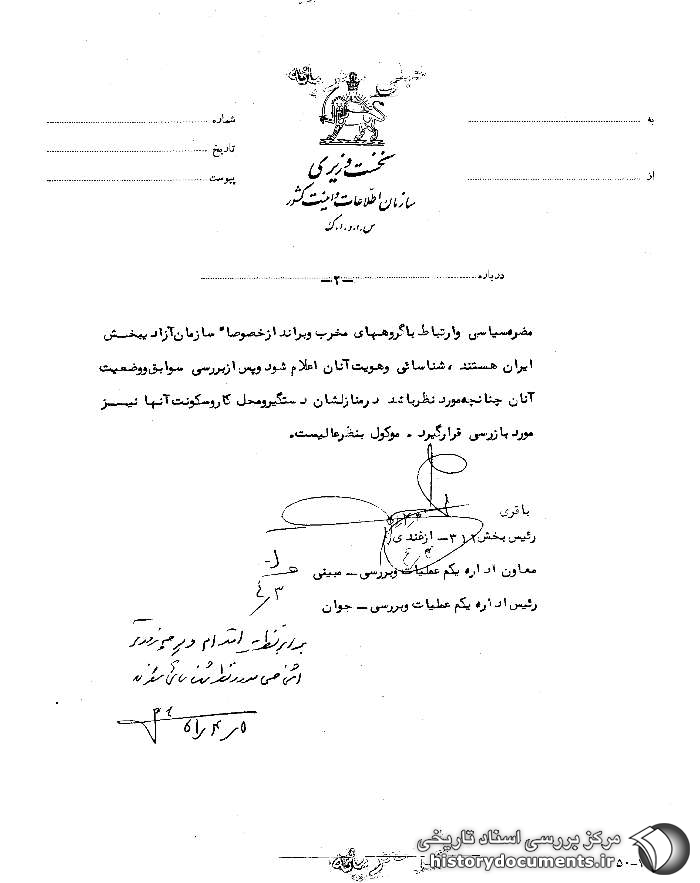 به
شماره
تاریخ
از
پیوست
نخست وزیری
سازمان اطلاعات و امنیت کشور
س.ا.و.ا.ک
درباره
-۲-
مضره‌سیاسی وارتباط باگروههای مخرب وبراندازخصوصا" سازمان‌آزاد یبخش
ایران هستند ، شناسائی وهویت‌آنان اعلام شود وپس ازبررسی سوابق‌ووضعیت
آنان چنانچه‌مورد نظرباشد درمنازلشان دستگیرومحل کاروسکونت‌آنها نیـــز
مورد بازرسی قرارگیرد . موکول بنظرعالیست.
باقری
رئیس بخش ۳۱۲- ازغندی
معاون اداره یکم عملیات وبررسی - مبینی
رئیس اداره یکم عملیات وبررسی - جوان
مرکز بررسی اسناد تاریخی
historydocuments.ir